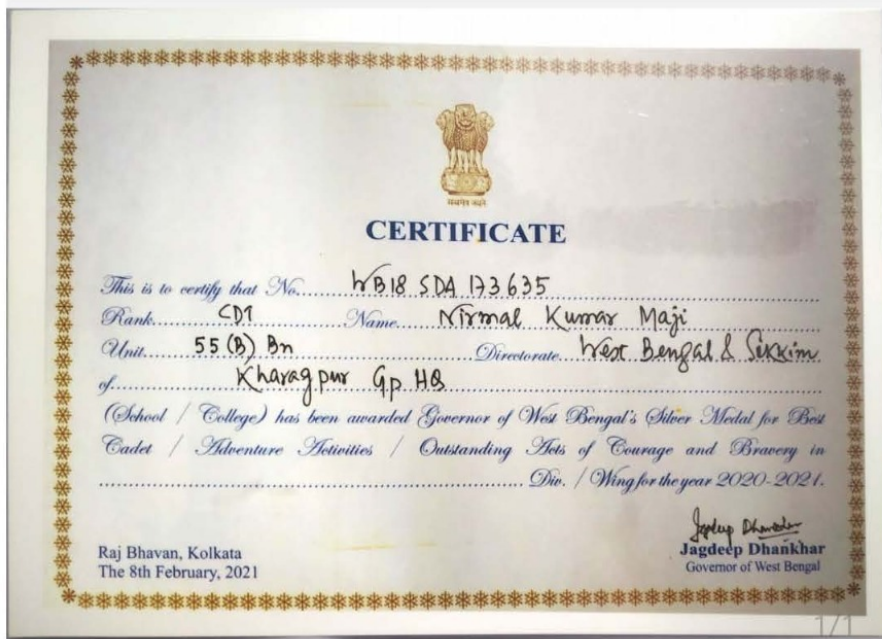 सत्यमेव जयते
CERTIFICATE
This is to certify that No. WB18 SDA 173635
Rank. CDT Name. Nirmal Kumar Maji
Unit. 55 (B) Bn Directorate. West Bengal & Sikkim
of. Kharagpur Gp HQ
(School / College) has been awarded Governor of West Bengal's Silver Medal for Best
Cadet / Adventure Activities / Outstanding Acts of Courage and Bravery in
Div. / Wing for the year 2020-2021.
Jagdeep Dhankhar
Raj Bhavan, Kolkata
Jagdeep Dhankhar
The 8th February, 2021
Governor of West Bengal
1/1